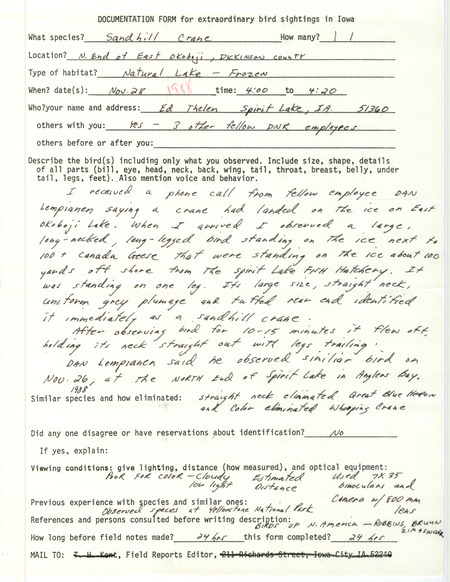 DOCUMENTATION FORM for extraordinary bird sightings in Iowa
What species? Sandhill Crane How many? 1
Location? N. End of East Okoboji, Dickinson County
Type of habitat? Natural Lake - Frozen
When? date(s): Nov. 28 1988 time: 4:00 to 4:20
Who?your name and address: Ed Thelen Spirit Lake, IA 51360
others with you: Yes - 3 other fellow DNR employees
others before or after you:
Describe the bird(s) including only what you observed. Include size, shape, details
of all parts (bill, eye, head, neck, back, wing, tail, throat, breast, belly, under
tail, legs, feet). Also mention voice and behavior.
I received a phone call from fellow employee DAN
Lempianen saying a crane had landed on the ice on East
Okoboji Lake. When I arrived I observed a large,
long-necked, long-legged bird standing on the ice next to
100+ Canada Geese that were standing on the ice about 100
yards off shore from the Spirit Lake Fish Hatchery. It
was standing on one leg. It's large size, straight neck,
uniform grey plumage and tufted rear end identified
it immediately as a sandhill crane.
After observing bird for 10-15 minutes it flew off,
holding its neck straight out with legs trailing.
DAN Lempianen said he observed similiar bird on
Nov. 26, at the North End of Spirit Lake in Anglers Bay.
1988
Similar species and how eliminated: straight neck eliminated Great Blue Heron
and color eliminated Whooping Crane
Did any one disagree or have reservations about identification? No
If yes, explain:
Viewing conditions: give lighting, distance (how measured), and optical equipment:
Poor for color - cloudy Estimated Used 7X35
low light Distance binoculars and
Camera w/ 800 mm
lens
Previous experience with species and similar ones:
Observed species at Yellowstone National Park
References and persons consulted before writing description:
BIRDS OF N. America - ROBBINS, BRUUN
How long before field notes made? 24 hrs this form completed? 24 hrs
MAIL TO: T. H. Kent, Field Reports Editor, 211 Richards Street, Iowa City IA 52240